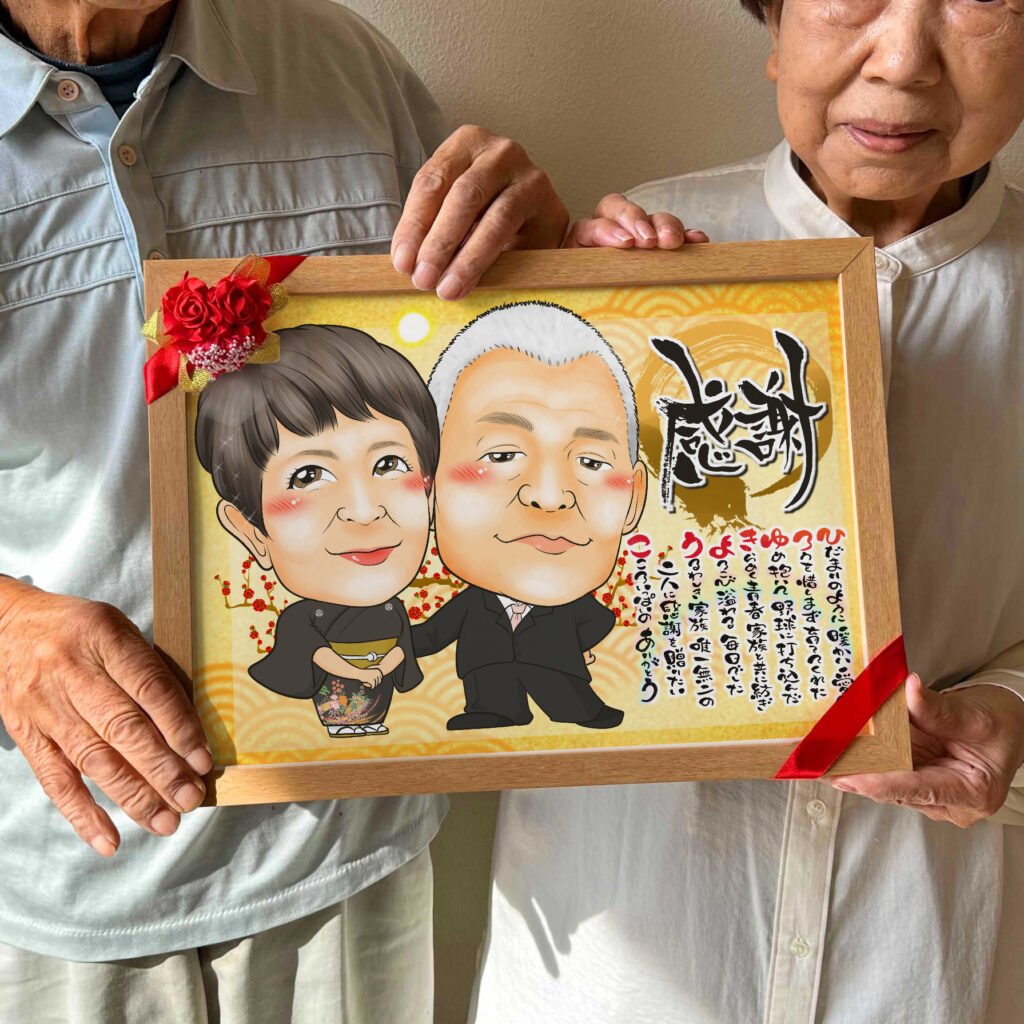 感謝
ひだまりのように暖かい愛
ろうを惜しまず育ててくれた
ゆめ抱い 野球に打ち込んだ
きらめく青春 家族と共に紡ぎ
よろこび溢れる 毎日でした
うるわしき家族 唯一無二の
二人に感謝を贈りたい
こころいっぱいの ありがとう